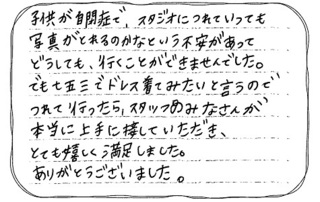 子供が自閉症で、スタジオにつれていっても
写真がとれるのかなという不安があって
どうしても、行くことができませんでした。
でも七五三でドレス着てみたいと言うので
つれて行ったら、スタッフのみなさんが
本当に上手に接していただき、
とても嬉しく満足しました。
ありがとうございました。